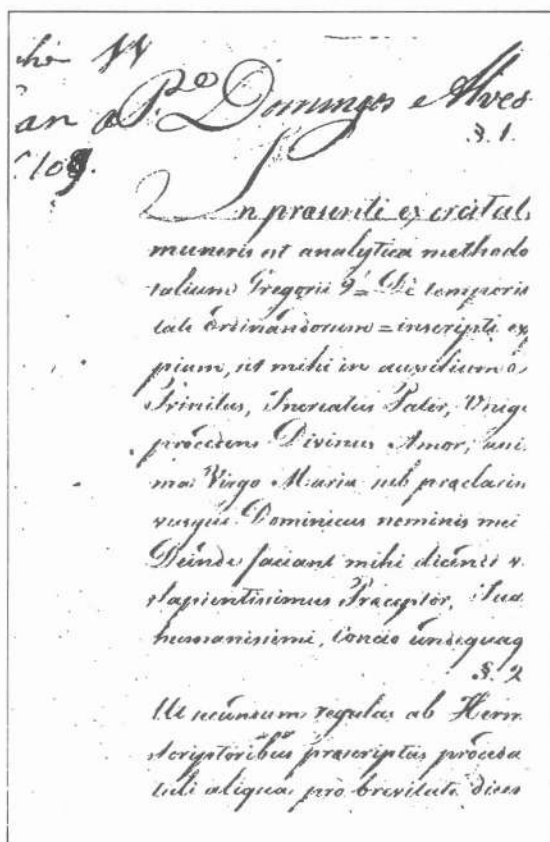 an a P.e Domingos Alves
§. 1.
In praesenti exercitat
muneris est analytica methodo
talium Gregorii 9 = De temporis
tate Ordinandorum = inscripti ex
piam, ut mihi in auxilium
Trinitas, Increatus Pater, Unige
procedens Divinus Amor,
ma Virgo Maria sub praeclaris
Dominicus nominis mei
Deinde faciant mihi dicendi v
sapientissimus Praeceptor, Sua
humanissimi, undequaq
§. 2
Ut secundum regulas ab Herm
scriptoribus praescriptas proceda
tuli aliqua pro brevitate dices